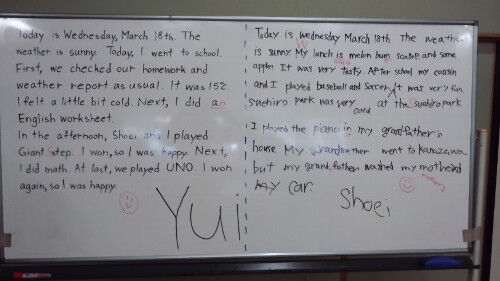 Today is Wednesday, March 18th. The
weather is sunny. Today, I went to school.
First, we checked our homework and
weather report as usual. It was 15℃.
I felt a little bit cold. Next, I did an
English worksheet.
In the afternoon, Shoei and I played
Giant step. I won, so I was happy. Next,
I did math. At last, we played UNO. I won
again, so I was happy.
Yui
Today is wednesday March 18th The weather
is sunny My lunch is melon bun and some
apples It was very tasty. After school my cousin
and I played baseball and soccer. It was very fun.
Suehiro park was very cold at the suehiro park
I played the piano in my grandfather's
house My grandmother went to kanazawa
but my grandfather washed my mother's
car.
Shoei